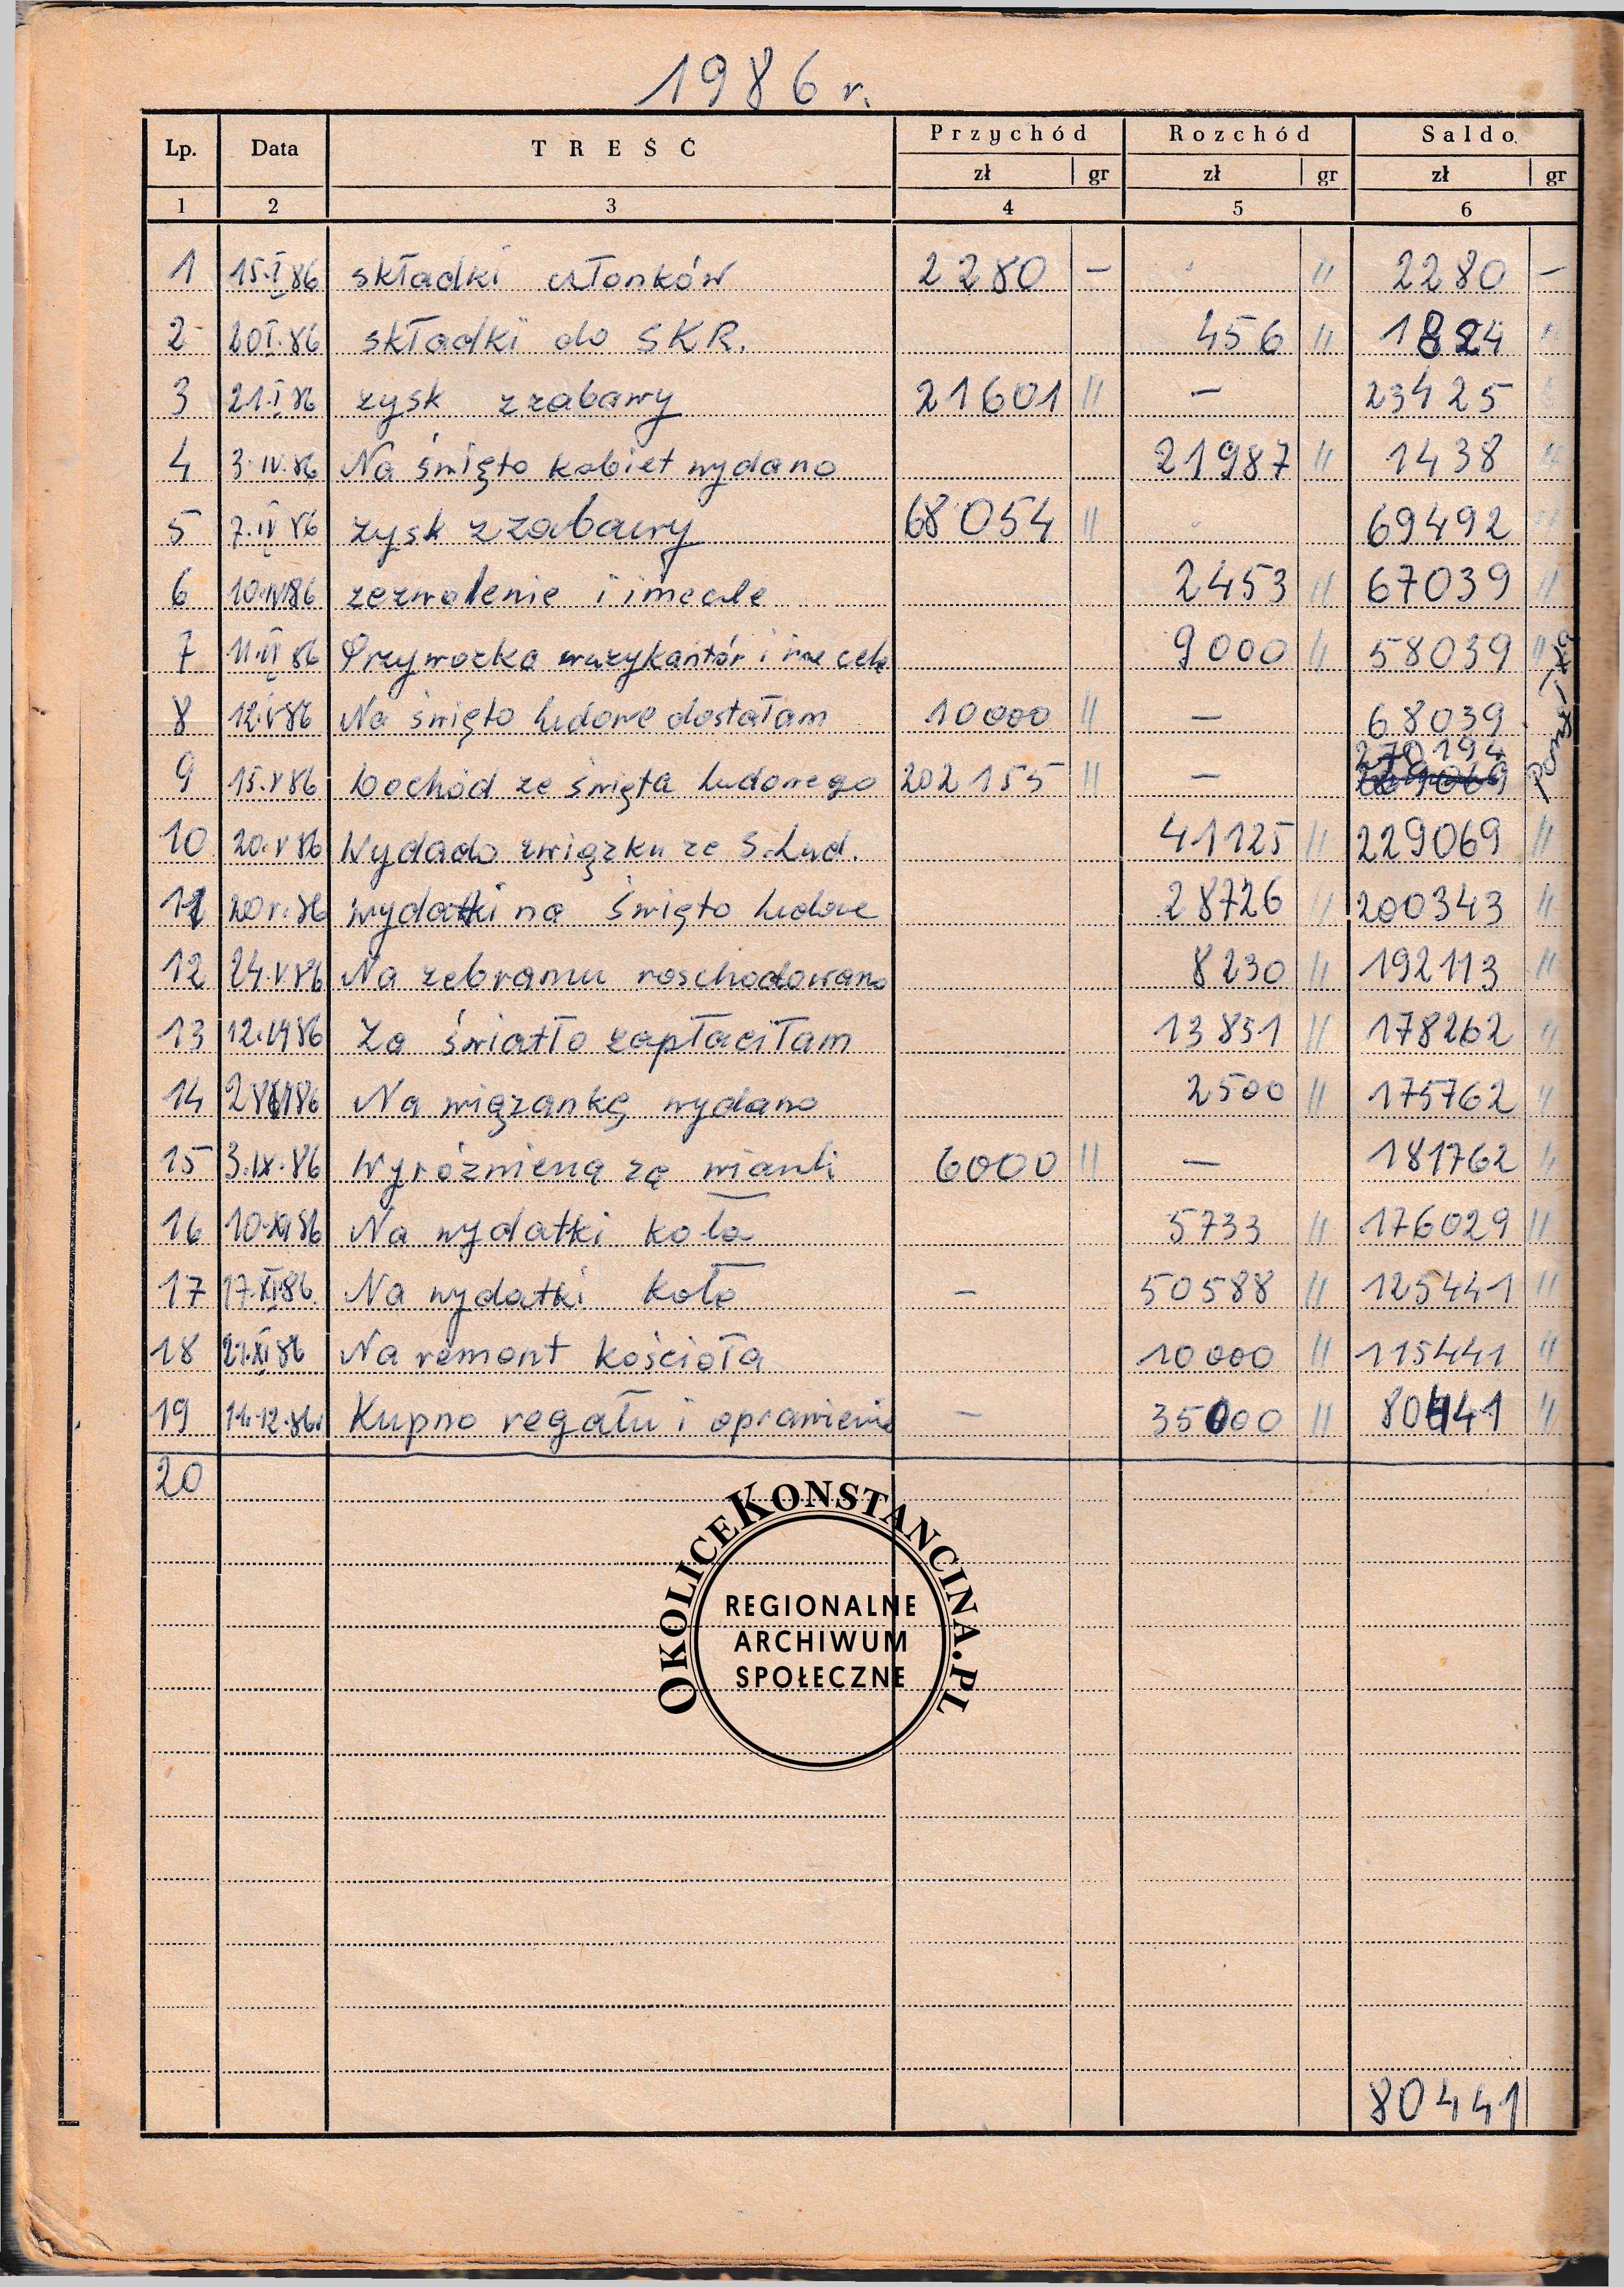 1986 r.
Lp. Data TREŚĆ Przychód Rozchód Saldo
zł gr zł gr zł gr
1 2 3 4 5 6
1 15.I.86 składki członków 2280 — " 2280 —
2 20.I.86 składki do SKR. 456 " 1824 "
3 21.I.86 zysk z zabawy 21601 " — 23425 "
4 3.IV.86 Na święto kobiet wydano 21987 " 1438 "
5 7.IV.86 zysk z zabawy 68054 " 69492 "
6 10.IV.86 zezwolenie i 2453 " 67039 "
7 11.IV.86 Przywozka muzykantów i inne cele 9000 " 58039 "
8 12.V.86 Na święto ludowe dostałam 10000 " — 68039
9 15.V.86 Dochód ze święta ludowego 202155 " — 270194
10 20.V.86 Wydado związku ze S.Lud. 41125 " 229069 "
11 20.V.86 wydatki na Święto ludowe 28726 " 200343 "
12 24.V.86 Na zebraniu roschodowano 8230 " 192113 "
13 12.VI.86 Za światło zapłaciłam 13851 " 178262 "
14 86 Na wiązankę wydano 2500 " 175762 "
15 3.IX.86 Wyróżnieną zą wianki 6000 " — 181762 "
16 10.XI.86 Na wydatki koła 5733 " 176029 "
17 17.XI.86. Na wydatki koło — 50588 " 125441 "
18 21.XI.86 Na remont kościoła 10000 " 115441 "
19 14.12.86r Kupno regału i oprawienie — 35000 " 80441 "
20
OKOLICEKONSTANCINA.PL
REGIONALNE
ARCHIWUM
SPOŁECZNE
80441